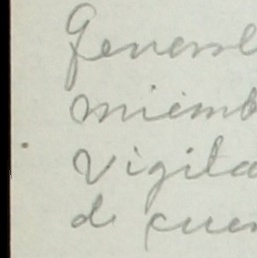 General
miemb
vigila
de cuen